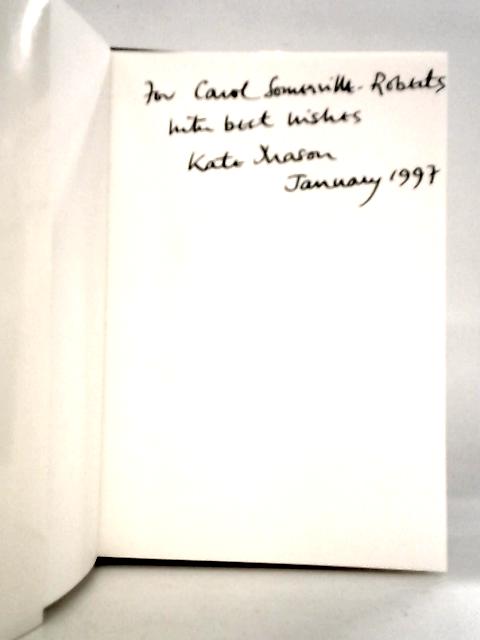 For Carol Somerville-Roberts
with best wishes
Kate Mason
January 1997